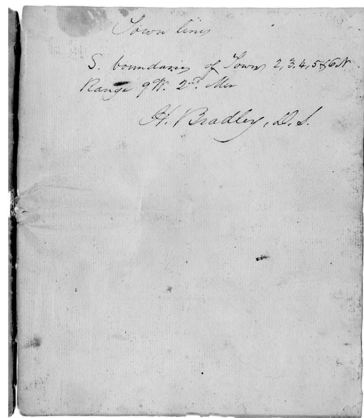 Town lines
S. boundaries of Towns 2, 3, 4, 5 & 6 N
Range 9 W. 2d. Mer
H. Bradley, D. S.